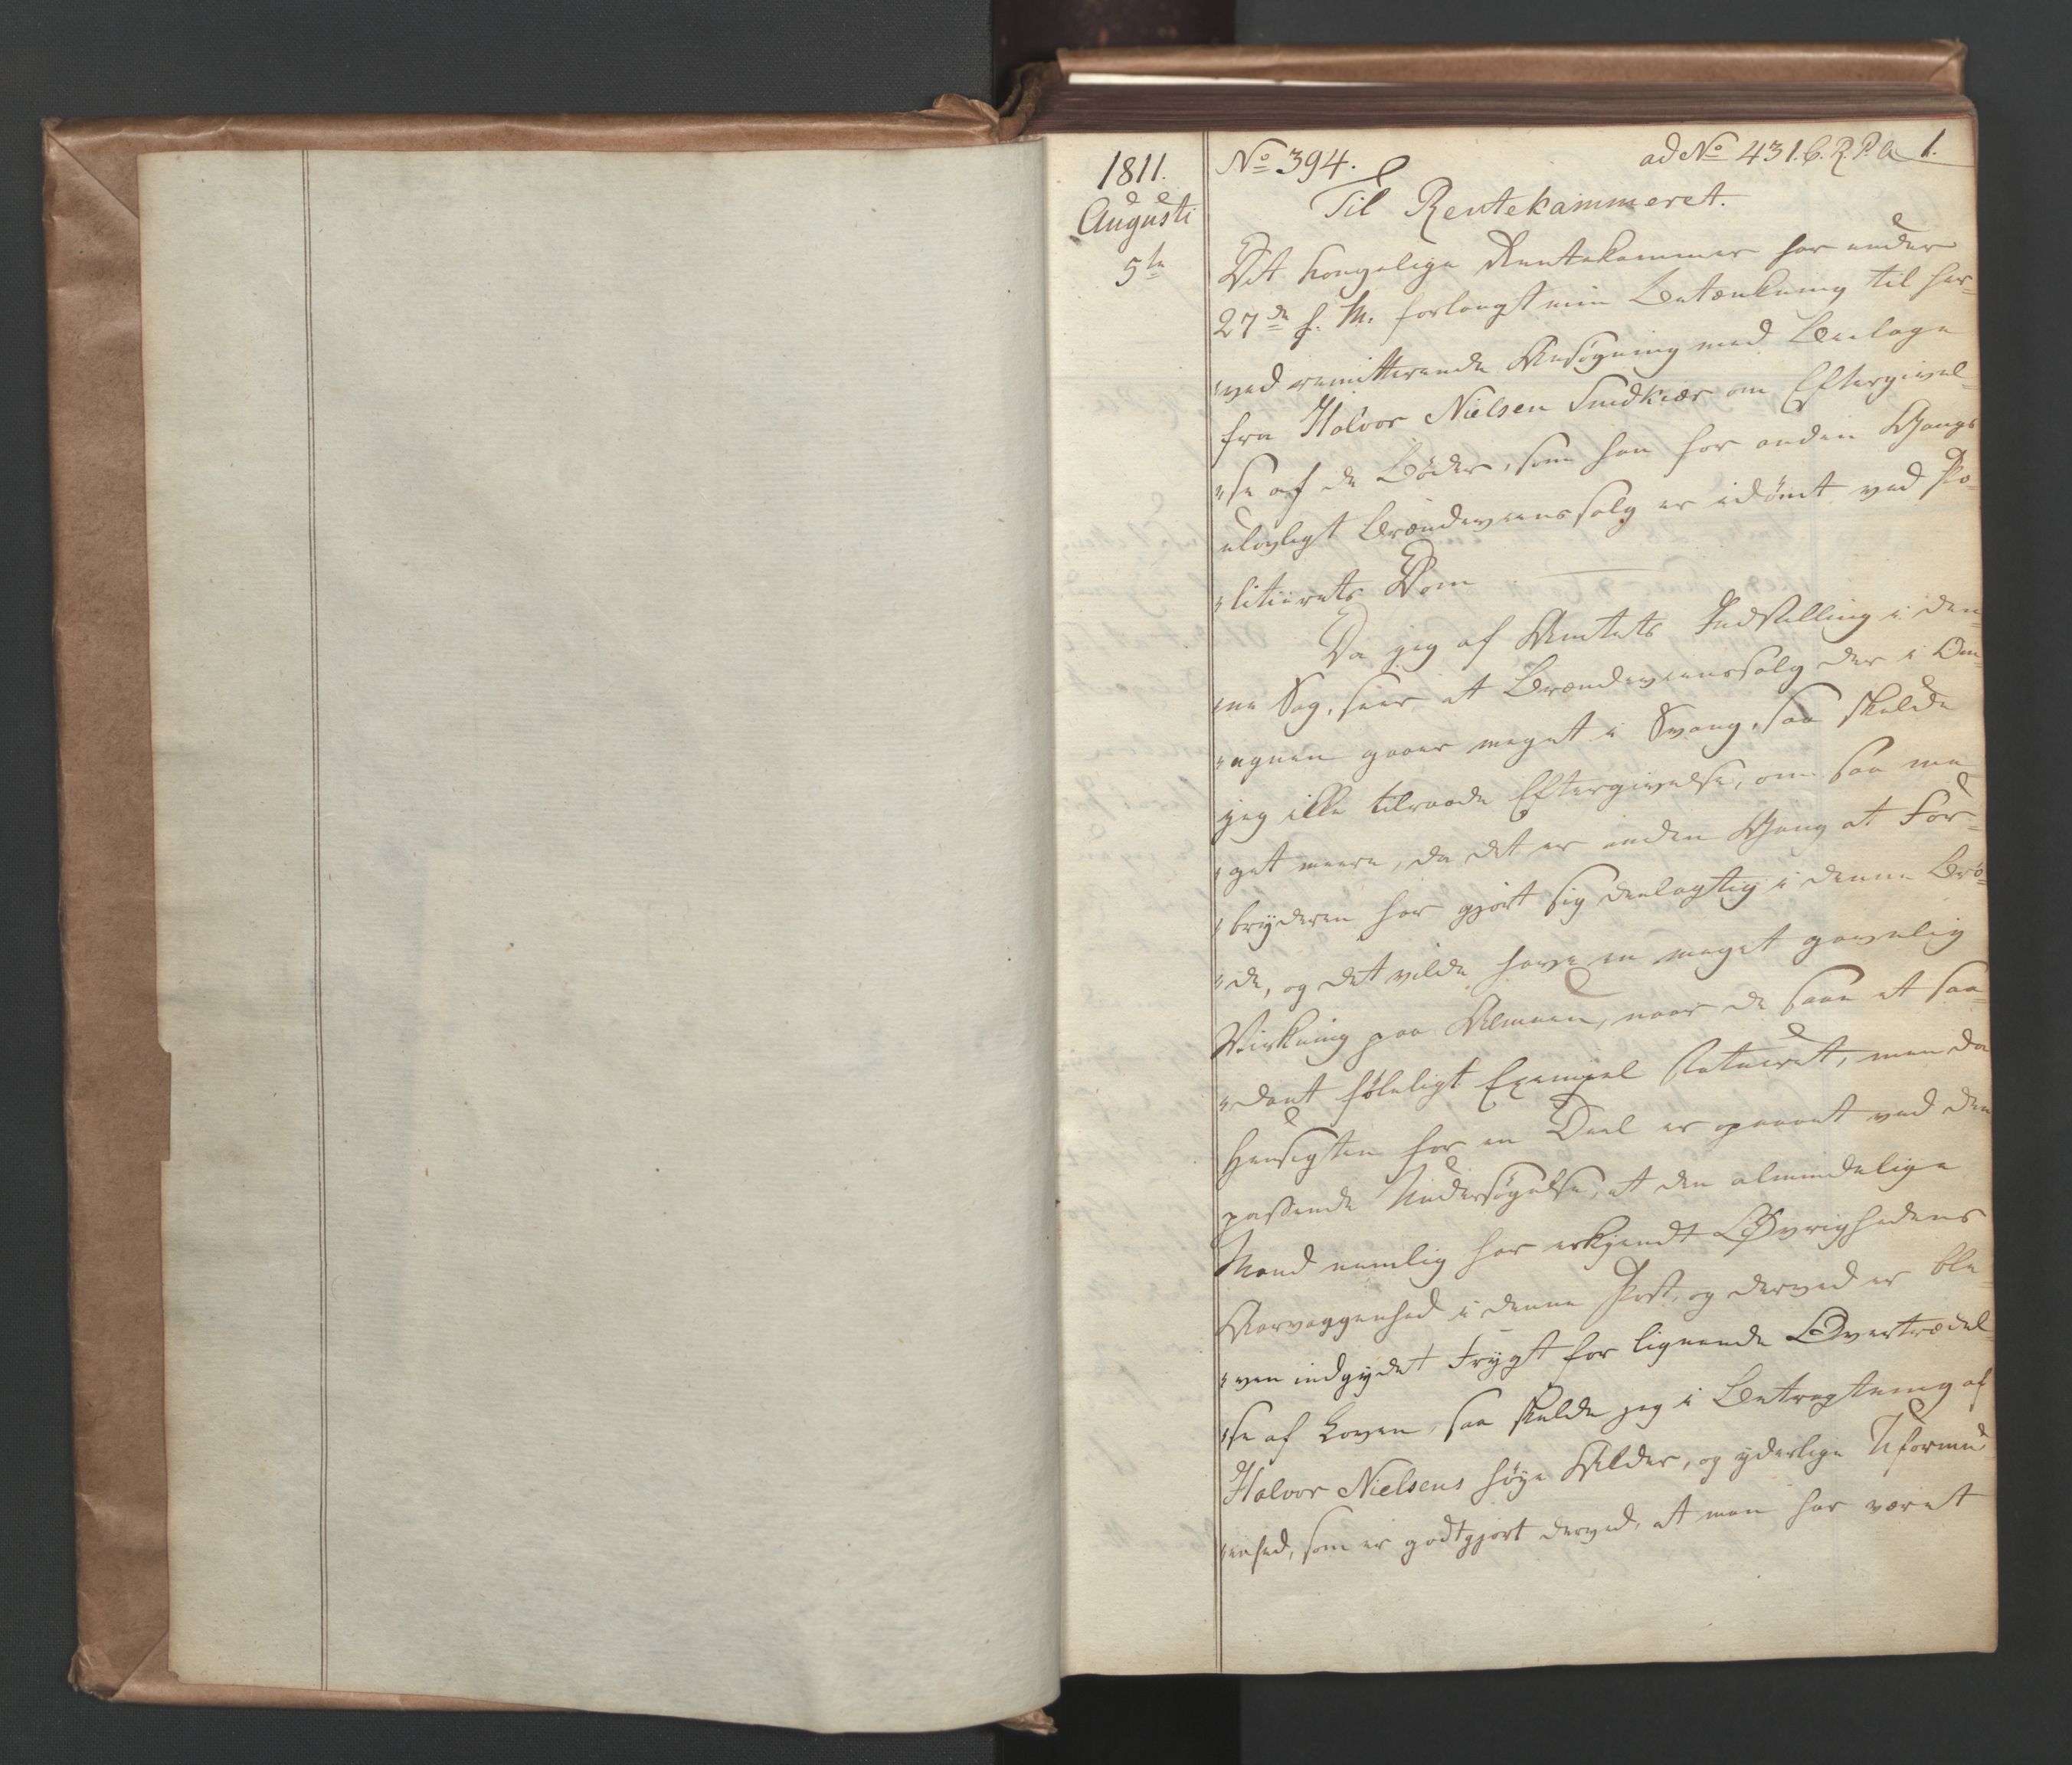 1811.
Augusti
5te
No 394. ad No 431. b. R. P. 1.
Til Rentekammeret.
Det kongelige Rentekammer har under
27de f. M. forlangt min Betænkning til her=
"ved remitterende Ansøgning med Beilage
fra Halvor Nielsen Sundkiær om Eftergivel=
"se af de Bøder, som han for anden Gangs
ulovligt Brændeviinssalg er idømt ved Po=
"litierets Dom
Da jeg af Amtets Indstilling i den=
"ne Sag, seer at Brændeviinssalg der i Om=
"egnen gaaer meget i Svang, saa skulde
jeg ikke tilraade Eftergivelse, om saa me=
"get meere, da det er anden Gang at For=
"bryderen har gjort sig deelagtig i denne Brø=
"de, og det vilde have en meget gavnlig
Virkning paa Almuen, naar de saae et saa=
"dant føleligt Exempel statueret, men da
Hensigten for en Deel er opnaaet ved den
passende Undersøgelse, at den almindelige
Mand nemlig har erkjendt Øvrighedens
Aarvaagenhed i denne Post, og derved er ble=
"ven indgydet Frygt for lignende Overtrædel=
"se af Loven, saa skulde jeg i Betragtning af
Halvor Nielsens høye Alder, og yderlige Uformu=
"enhed, som er godtgjort derved, at man har været